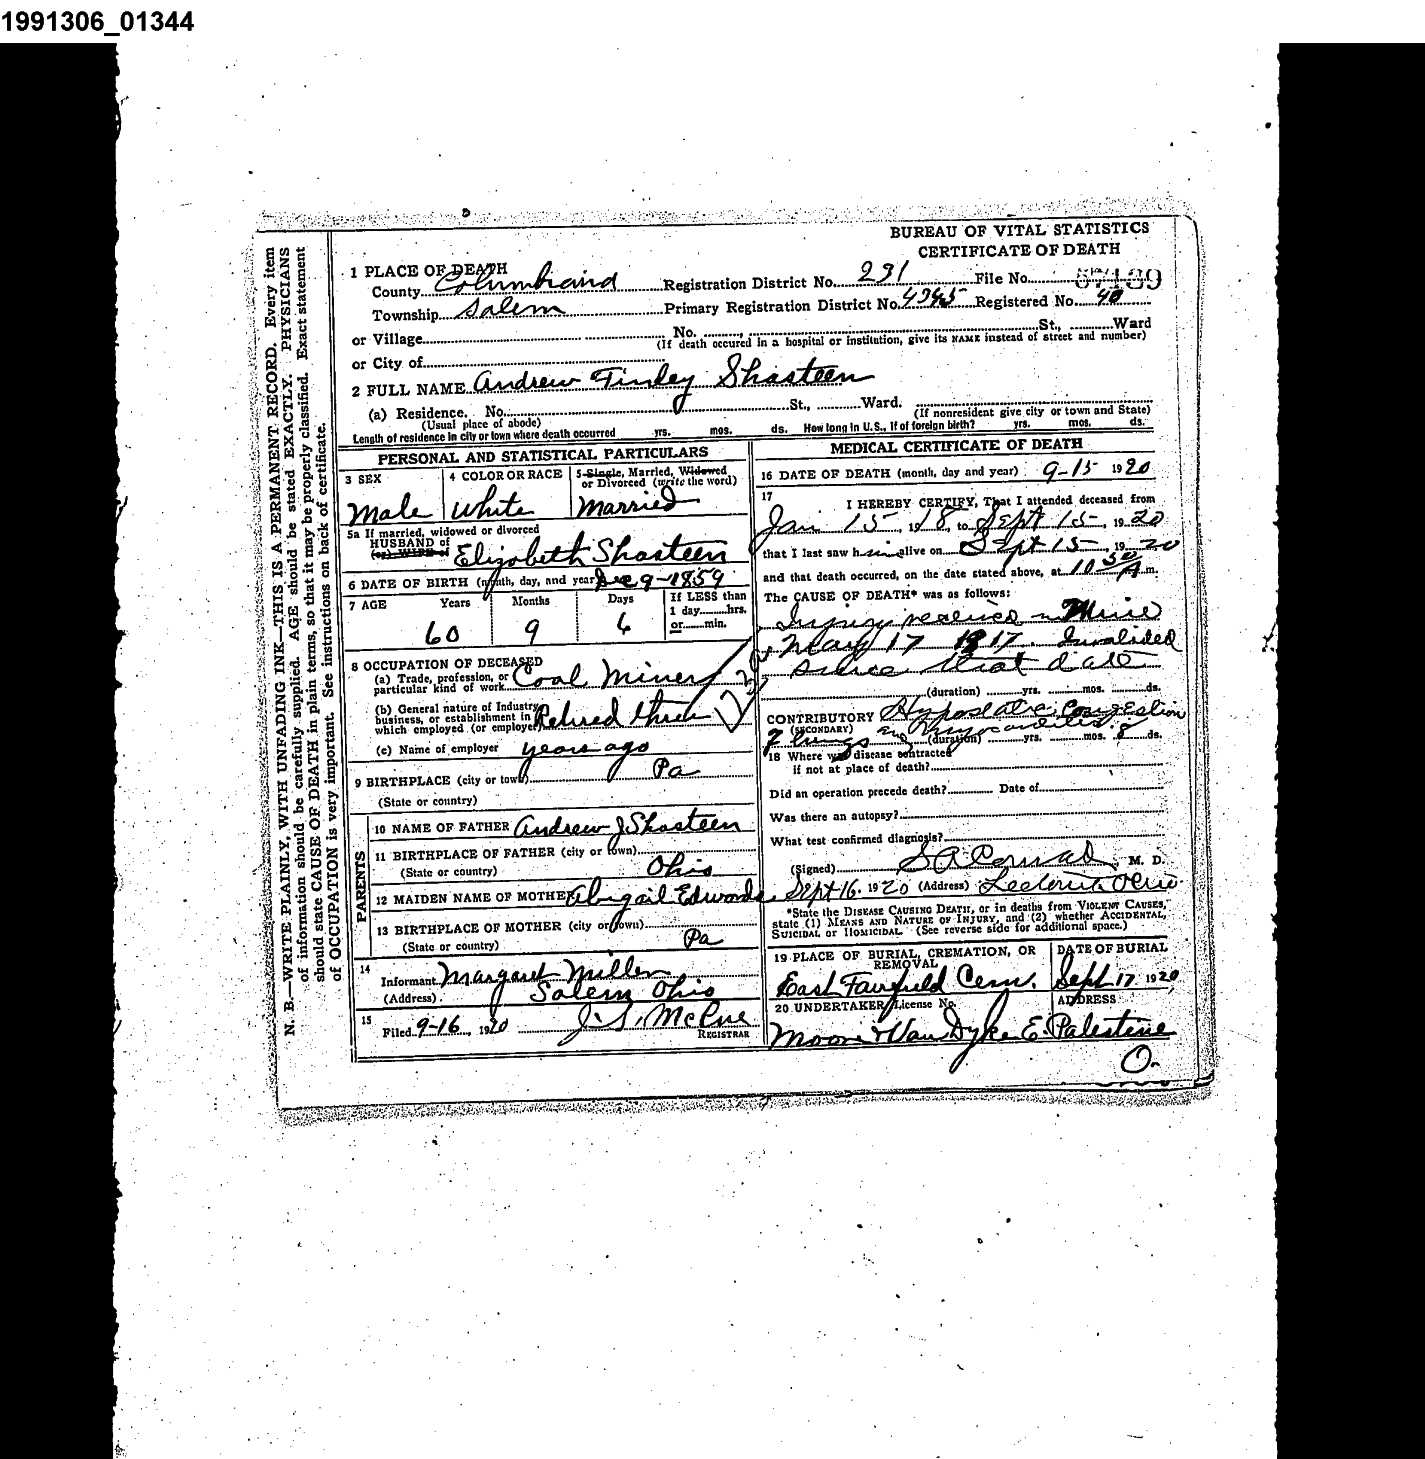 1991306_01344
BUREAU OF VITAL STATISTICS
CERTIFICATE OF DEATH
1 PLACE OF DEATH
County Columbiana Registration District No. 231 File No. 57139
Township Salem Primary Registration District No. 4345 Registered No. 40
or Village No. St., Ward
(If death occured in a hospital or institution, give its NAME instead of street and number)
or City of
2 FULL NAME Andrew Finley Shasteen
(a) Residence. No. St., Ward.
(Usual place of abode) (If nonresident give city or town and State)
Length of residence in city or town where death occurred yrs. mos. ds. How long in U.S., if of foreign birth? yrs. mos. ds.
PERSONAL AND STATISTICAL PARTICULARS
3 SEX 4 COLOR OR RACE 5 Single, Married, Widowed
or Divorced (write the word)
Male White Married
5a If married, widowed or divorced
HUSBAND of
(or) WIFE of Elizabeth Shasteen
6 DATE OF BIRTH (month, day, and year) Dec 9-1859
7 AGE Years Months Days If LESS than
1 day hrs.
or min.
60 9 6
8 OCCUPATION OF DECEASED
(a) Trade, profession, or
particular kind of work Coal Miner
(b) General nature of Industry,
business, or establishment in
which employed (or employer) Retired three
(c) Name of employer years ago
9 BIRTHPLACE (city or town) Pa
(State or country)
PARENTS
10 NAME OF FATHER Andrew J Shasteen
11 BIRTHPLACE OF FATHER (city or town)
(State or country) Ohio
12 MAIDEN NAME OF MOTHER Abigail Edwards
13 BIRTHPLACE OF MOTHER (city or town)
(State or country) Pa
14
Informant Margaret Miller
(Address) Salem Ohio
15
Filed 9-16, 1920 J. S. McCue
REGISTRAR
MEDICAL CERTIFICATE OF DEATH
16 DATE OF DEATH (month, day and year) 9-15 1920
17
I HEREBY CERTIFY, That I attended deceased from
Jan 15, 1918, to Sept 15, 1920
that I last saw him alive on Sept 15 1920
and that death occurred, on the date stated above, at 10 30 A m.
The CAUSE OF DEATH* was as follows:
Injury received in Mine
May 17 1917. Invalided
since that date
(duration) yrs. mos. ds.
CONTRIBUTORY Hypostatic Congestion
(SECONDARY)
of lungs and Myocarditis (duration) yrs. mos. 8 ds.
18 Where was disease contracted
if not at place of death?
Did an operation precede death? Date of
Was there an autopsy?
What test confirmed diagnosis?
(Signed) M. D.
Sept 16, 1920 (Address) Leetonia Ohio
*State the DISEASE CAUSING DEATH, or in deaths from VIOLENT CAUSES,
state (1) MEANS AND NATURE OF INJURY, and (2) whether ACCIDENTAL,
SUICIDAL or HOMICIDAL. (See reverse side for additional space.)
19 PLACE OF BURIAL, CREMATION, OR
REMOVAL
DATE OF BURIAL
East Fairfield Cem. Sept 17 1920
20 UNDERTAKER, License No. ADDRESS
Moore & Van Dyke E. Palestine
O.
N. B.—WRITE PLAINLY, WITH UNFADING INK—THIS IS A PERMANENT RECORD. Every item
of information should be carefully supplied. AGE should be stated EXACTLY. PHYSICIANS
should state CAUSE OF DEATH in plain terms, so that it may be properly classified. Exact statement
of OCCUPATION is very important. See instructions on back of certificate.